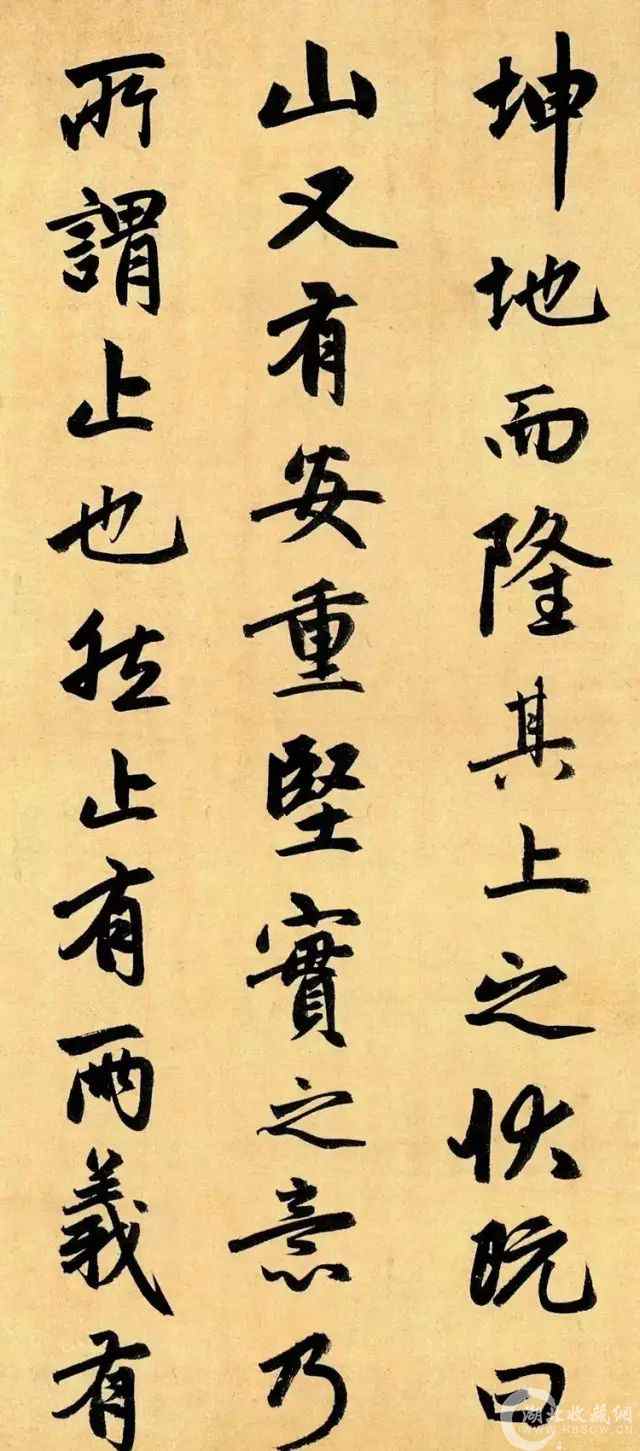 坤地而隆其上之状既曰
山又有安重堅實之意乃
所謂止也然止有兩義有
湖北收藏網